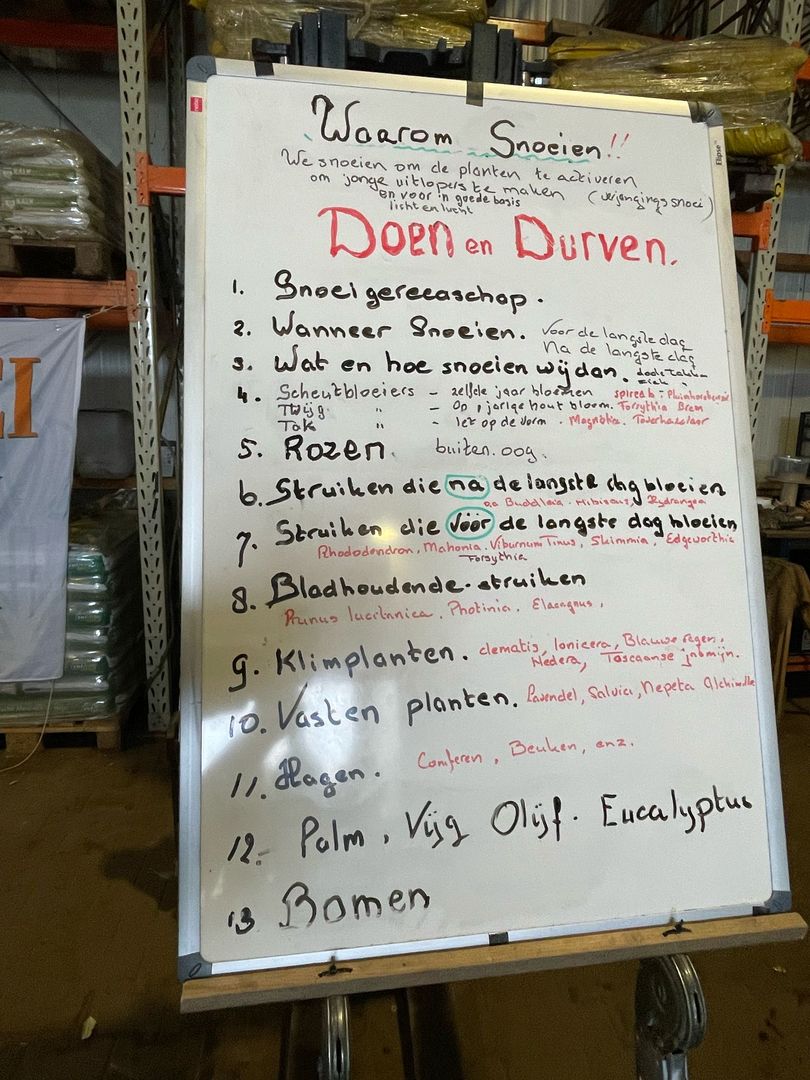 Waarom Snoeien!!
We snoeien om de planten te activeren
om jonge uitlopers te maken (verjongingssnoei)
en voor 'n goede basis
licht en lucht
Doen en Durven.
1. Snoeigereeaschap.
2. Wanneer Snoeien. Voor de langste dag
Na de langste dag
3. Wat en hoe snoeien wij dan. dode takken
ziek
4. Scheutbloeiers - zelfde jaar bloemen spirea b -
Twijg " - Op 1 jarige hout bloem. Forsythia Brem
Tak " - let op de vorm - Magnolia. Toverhazelaar
5. Rozen. buiten.oog.
6. Struiken die na de langste dag bloeien
Buddleia. Hibiscus, Hydrangea
7. Struiken die vóór de langste dag bloeien
Rhododendron, Mahonia. Viburnum Tinus, Skimmia, Edgeworthia
Forsythia
8. Bladhoudende-struiken
Prunus lucitanica. Photinia. Elaeagnus,
9. Klimplanten. clematis, lonicera, Blauwe regen,
Hedera, Toscaanse jasmijn.
10. Vasten planten. Lavendel, Salvia, Nepeta Alchimilla
11. Hagen. Coniferen, Beuken, enz.
12.- Palm, Vijg Olijf. Eucalyptus
13 Bomen
Elipse
KALK
EI